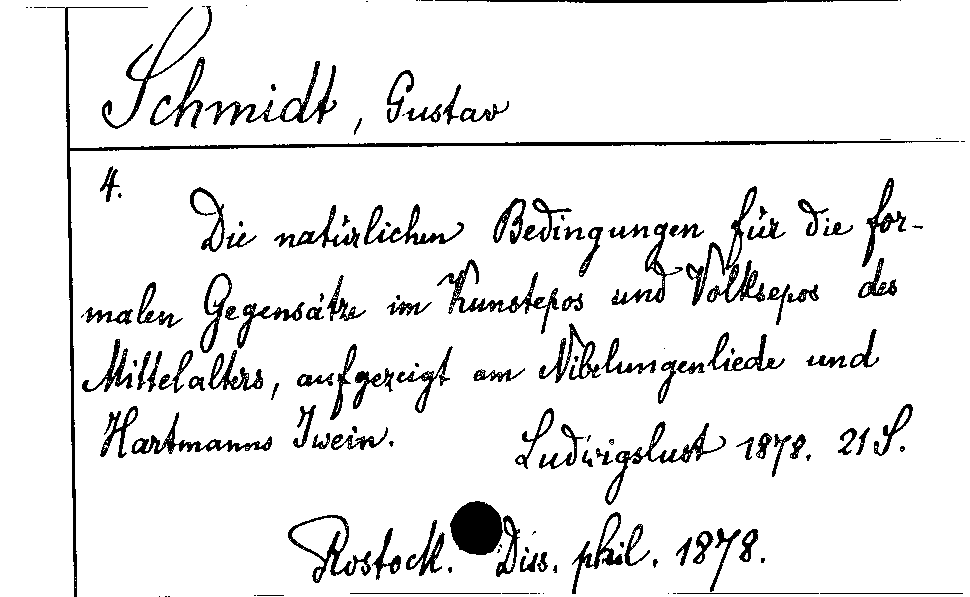 Schmidt, Gustav
4.
Die natürlichen Bedingungen für die for-
malen Gegensätze im Kunstepos und Volksepos des
Mittelalters, aufgezeigt am Nibelungenliede und
Hartmanns Iwein.
Ludwigslust 1878. 21 S.
Rostock. Diss. phil. 1878.